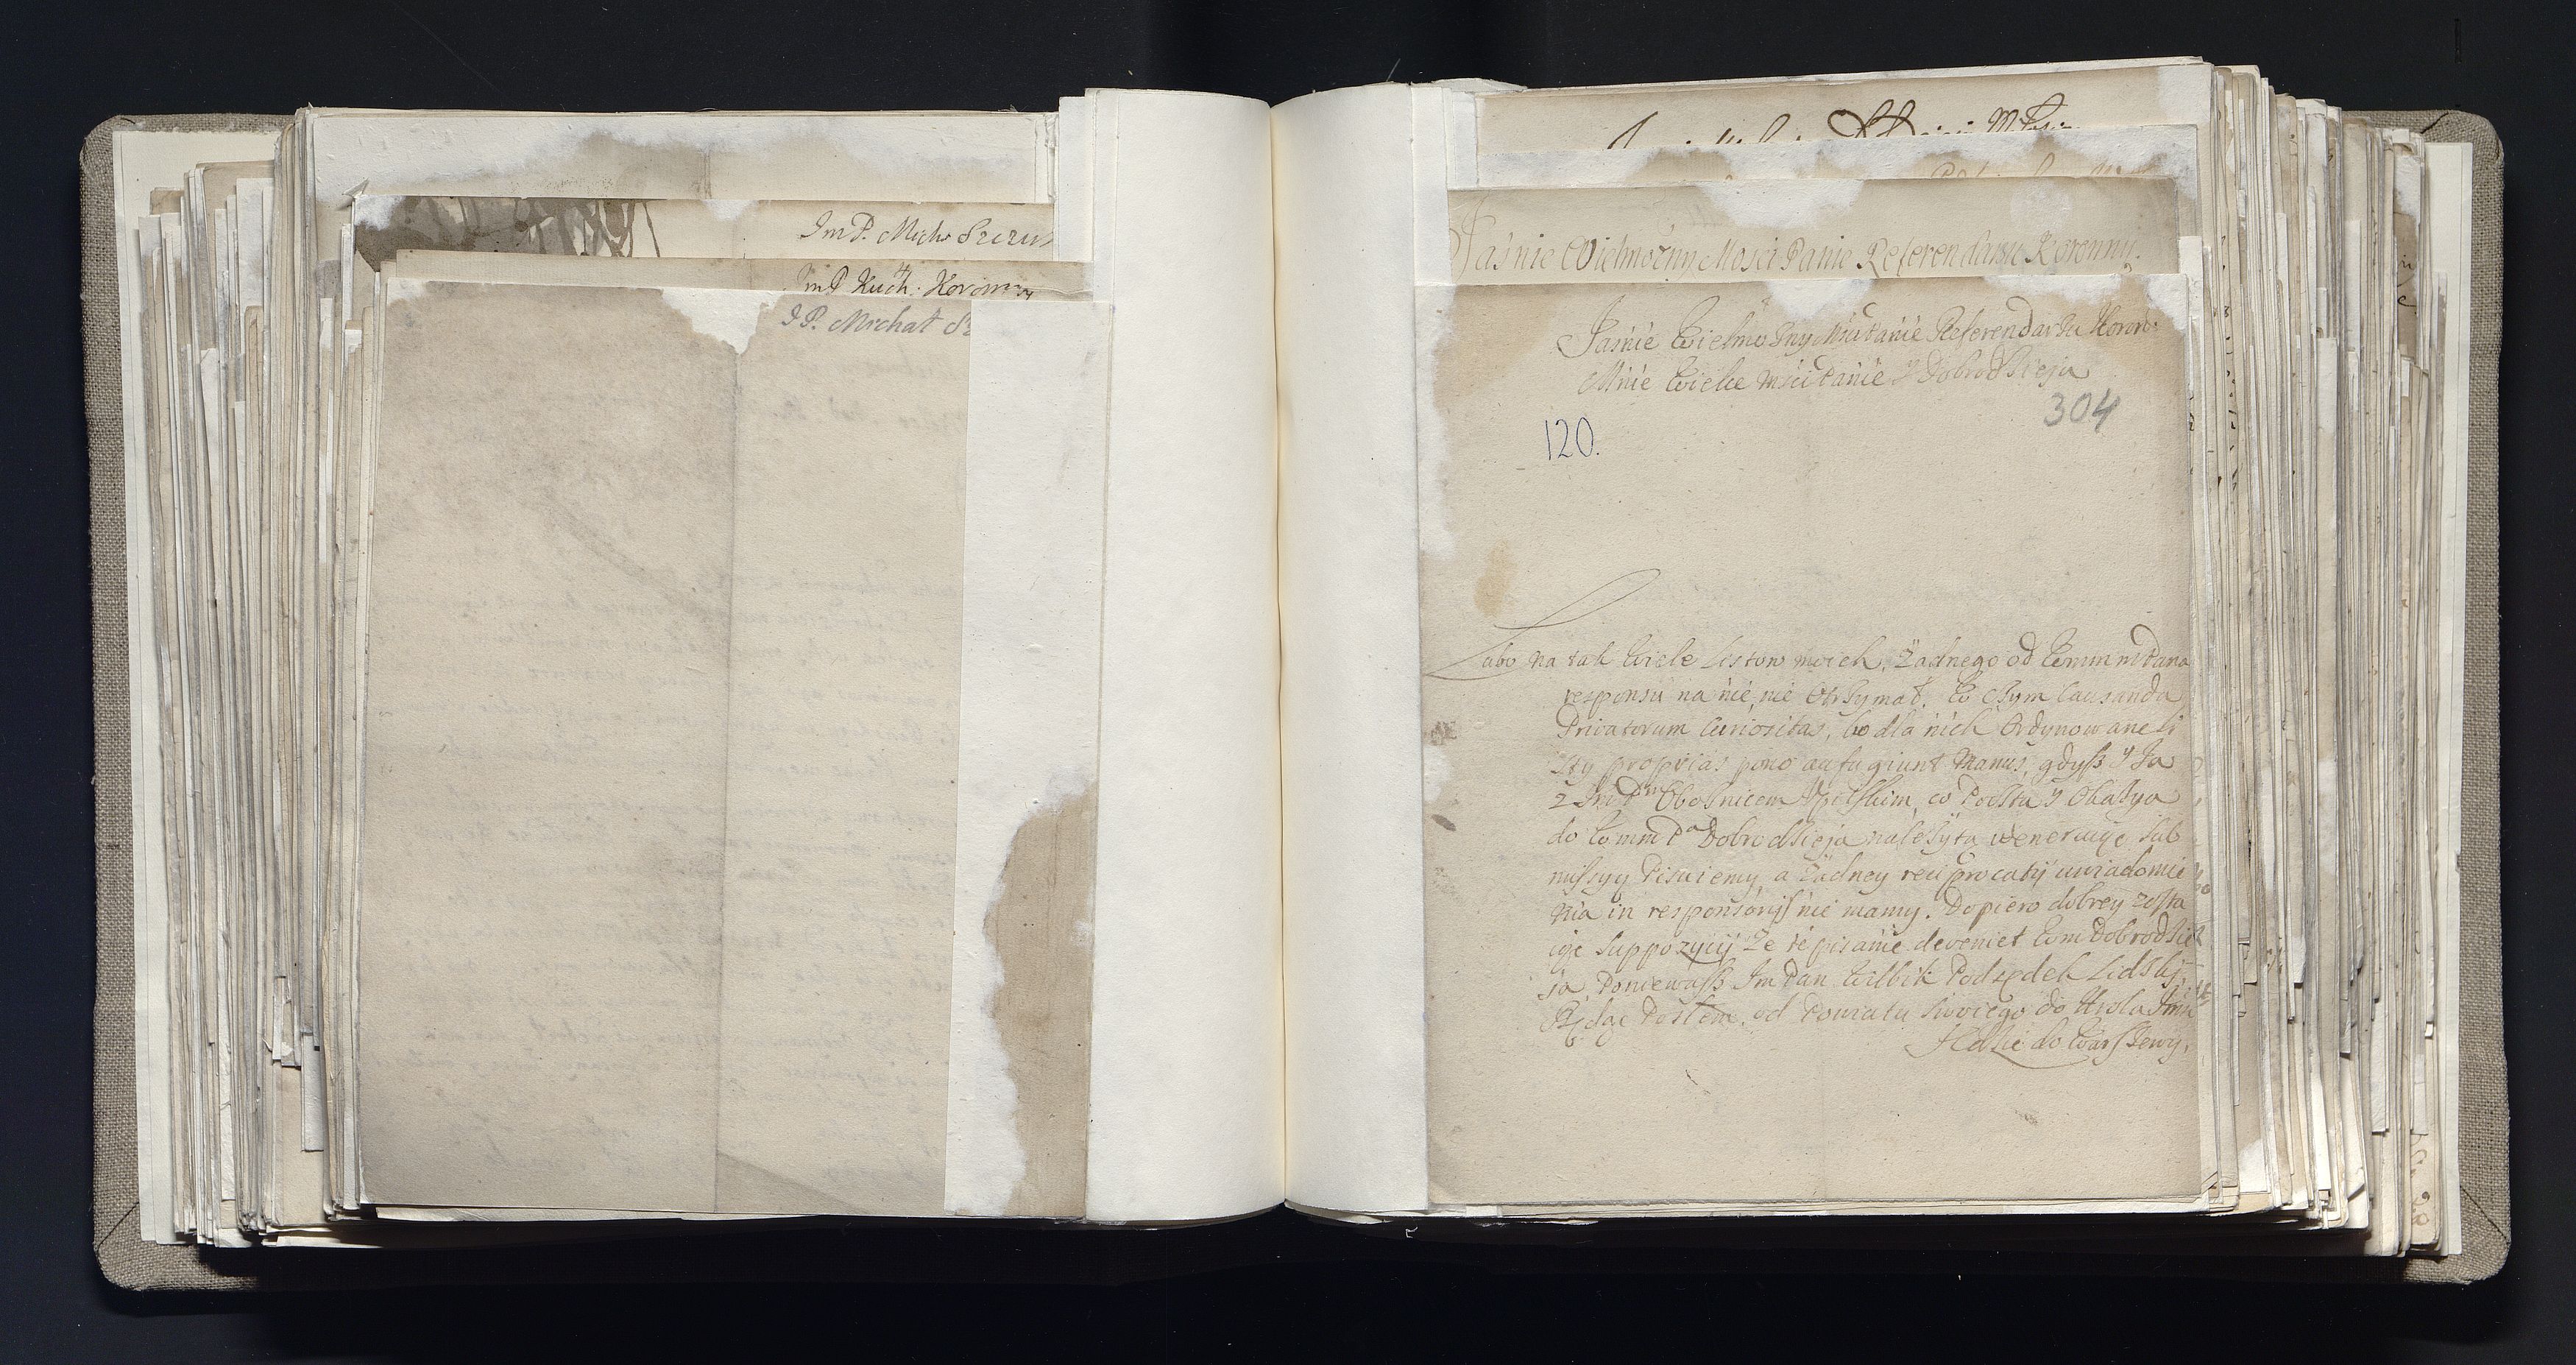 ImP. Mich. Szczu
ImP Kuch: Koronny
JP. Michał Sz
Jaśnie Wielmożny Mości Panie Referendarzu Koronny.
Jasnie Wielmożny Mści Panie Referendarzu Koron:
Mnie Wielce Mści Panie y Dobrodzieja
304
120.
Lubo na tak Wiele Listow moich, Zadnego od Wmm mPana
responsu na nie, nie Otrzymał. W czym Causanda
Privatorum Curiositas, bo dla nich Ordynowane li
sty proprias pono aufugiunt Manus, gdysz y Ja
z ImP Oboznicem co Posta y Okazya
do Wmm Pa Dobrodzieja nalezyta Weneruię Sub
missyą Piszięmy, a Zadney reciprocatij uwiadomie
nia in responsorijs nie mamy. Dopiero dobrey zosta
ię Suppozycij Ze te pisanie deveniet Wm Dobrodzie
ja Poniewasz Im Pan Wilbik Podsędek Lidski,
Będąc Posłem, od Powiatu swoiego do Krola Imci
do Warszewy,